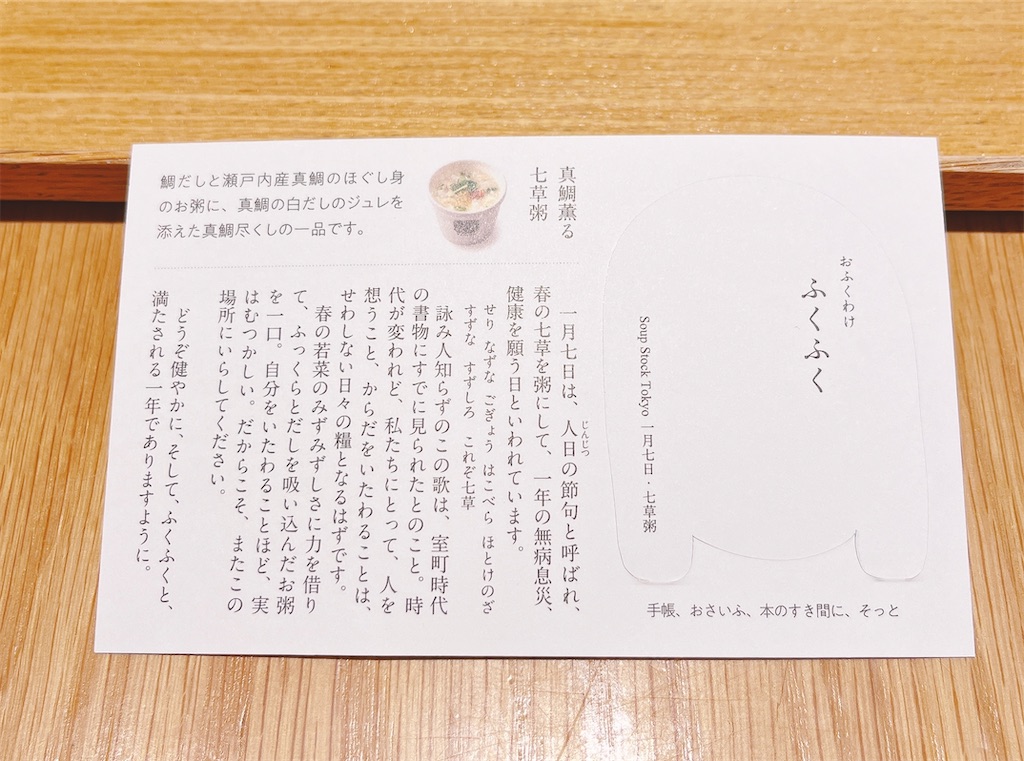 おふくわけ
ふくふく
Soup Stock Tokyo 一月七日・七草粥
手帳、おさいふ、本のすき間に、そっと
真鯛薫る
七草粥
鯛だしと瀬戸内産真鯛のほぐし身
のお粥に、真鯛の白だしのジュレを
添えた真鯛尽くしの一品です。
一月七日は、人日の節句と呼ばれ、
じんじつ
春の七草を粥にして、一年の無病息災、
健康を願う日といわれています。
せり なずな ごぎょう はこべら ほとけのざ
すずな すずしろ これぞ七草
詠み人知らずのこの歌は、室町時代
の書物にすでに見られたとのこと。時
代が変われど、私たちにとって、人を
想うこと、からだをいたわることは、
せわしない日々の糧となるはずです。
春の若菜のみずみずしさに力を借り
て、ふっくらとだしを吸い込んだお粥
を一口。自分をいたわることほど、実
はむつかしい。だからこそ、またこの
場所にいらしてください。
どうぞ健やかに、そして、ふくふくと、
満たされる一年でありますように。